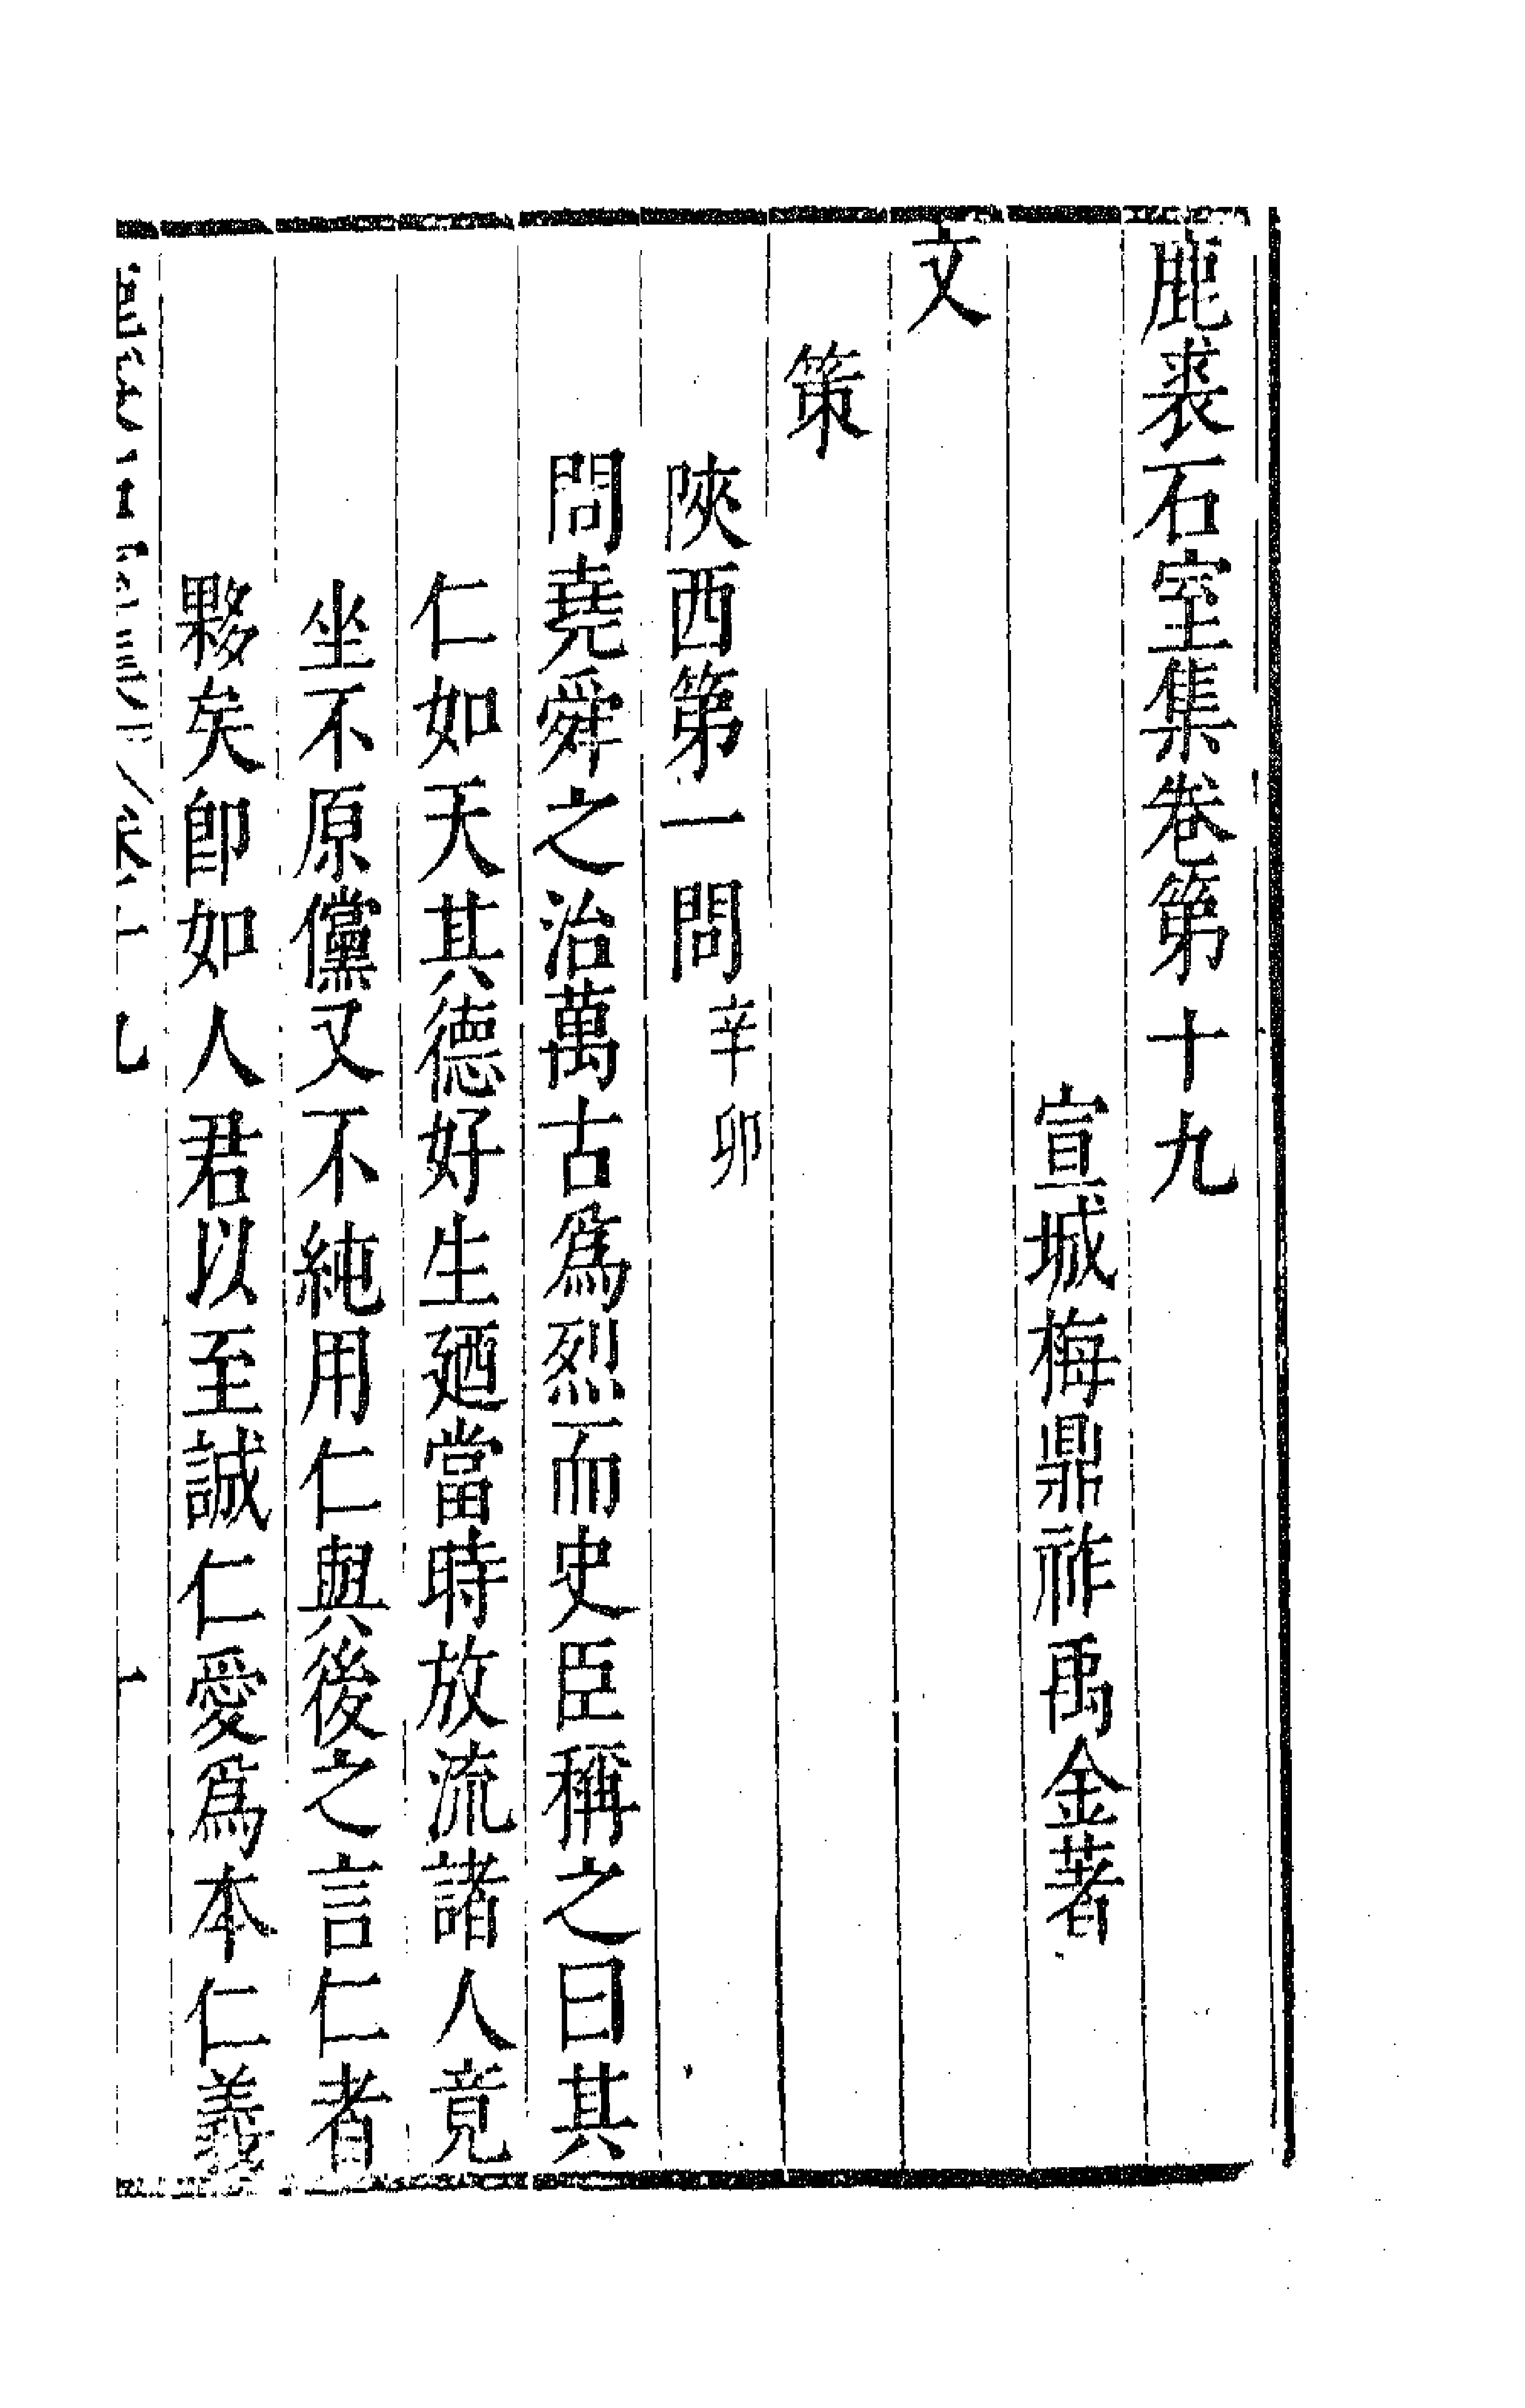 鹿裘石室集卷第十九
宣城梅鼎祚禹金著
文
策
陜西第一問辛卯
問堯舜之治萬古爲烈而史臣稱之曰其
仁如天其德好生廼當時放流諸人竟
坐不原儻又不純用仁與後之言仁者
夥矣卽如人君以至誠仁愛爲本仁義